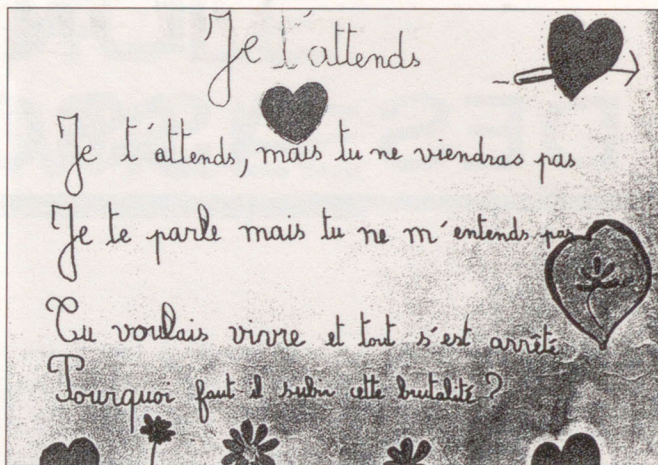 Je t'attends
Je t'attends, mais tu ne viendras pas
Je te parle mais tu ne m'entends pas
Tu voulais vivre et tout s'est arrêté
Pourquoi faut il subir cette brutalité ?